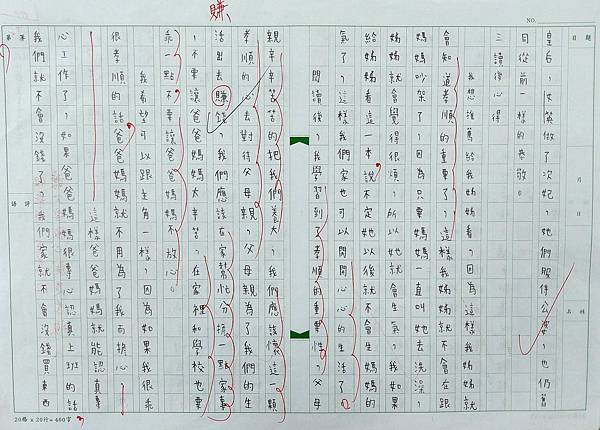 賺
NO.
日期 月 日
名姓
皇后，女英做了次妃，她們服侍公婆，也仍舊
同從前一樣的恭敬。
三、讀後心得
我想推薦給我姊姊看，因為這樣姊姊就
會知道孝順的重要了，這樣我姊姊就不會在跟
媽媽吵架了，因為只要媽媽一直叫她去洗澡，
姊姊就會覺得很煩，所以她就會生氣，我如果
給姊姊看這一本，說不定她以後就不會生媽媽的
氣了，這樣我們家也可以開開心心的生活了。
閱讀後，我學習到了孝順的重要性，父母
親辛辛苦苦的把我們養大，我們應該懷這一顆
孝順的心去對待父母親，父母親為了我們的生
活出去賺錢，我們應該在家幫忙分擔一點家事
，不要讓爸爸媽媽太辛苦，在家裡和學校也要
乖一點不要讓爸爸媽媽不放心。
我希望可以跟主角一樣，因為如果我很乖
很孝順的話，爸爸媽媽就不用為了我而擔心
，這樣爸爸媽媽就能認真
心工作了，如果爸爸媽媽很專心認真上班的話
我們就不會沒錢了，我們家就不會沒錢買東西
第 頁
評語
20格 x 20行= 400字